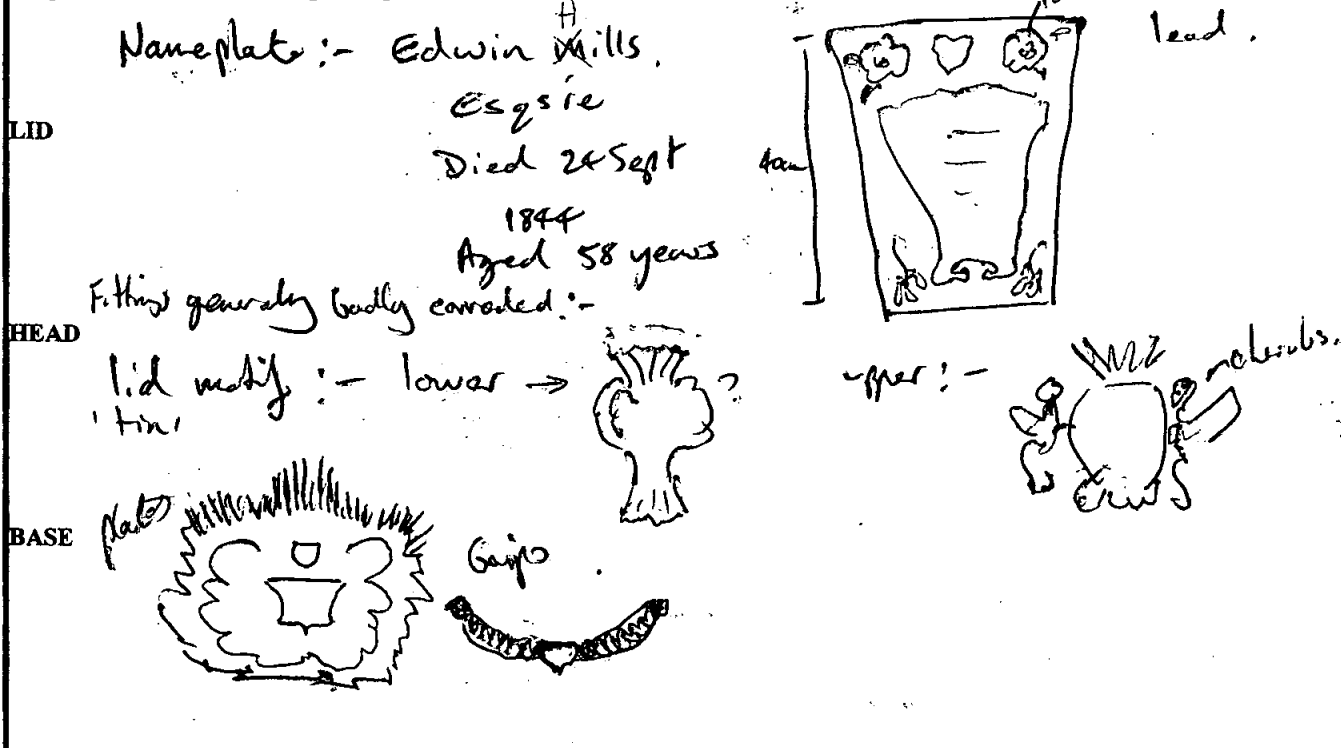 Nameplate :- Edwin Hills.
Esqsie
Died 24 Sept
1844
Aged 58 years
lead.
LID
Fittings generally badly corroded :-
HEAD
lid motif :- lower → ?
'tin'
upper :-
BASE
plates
Grips